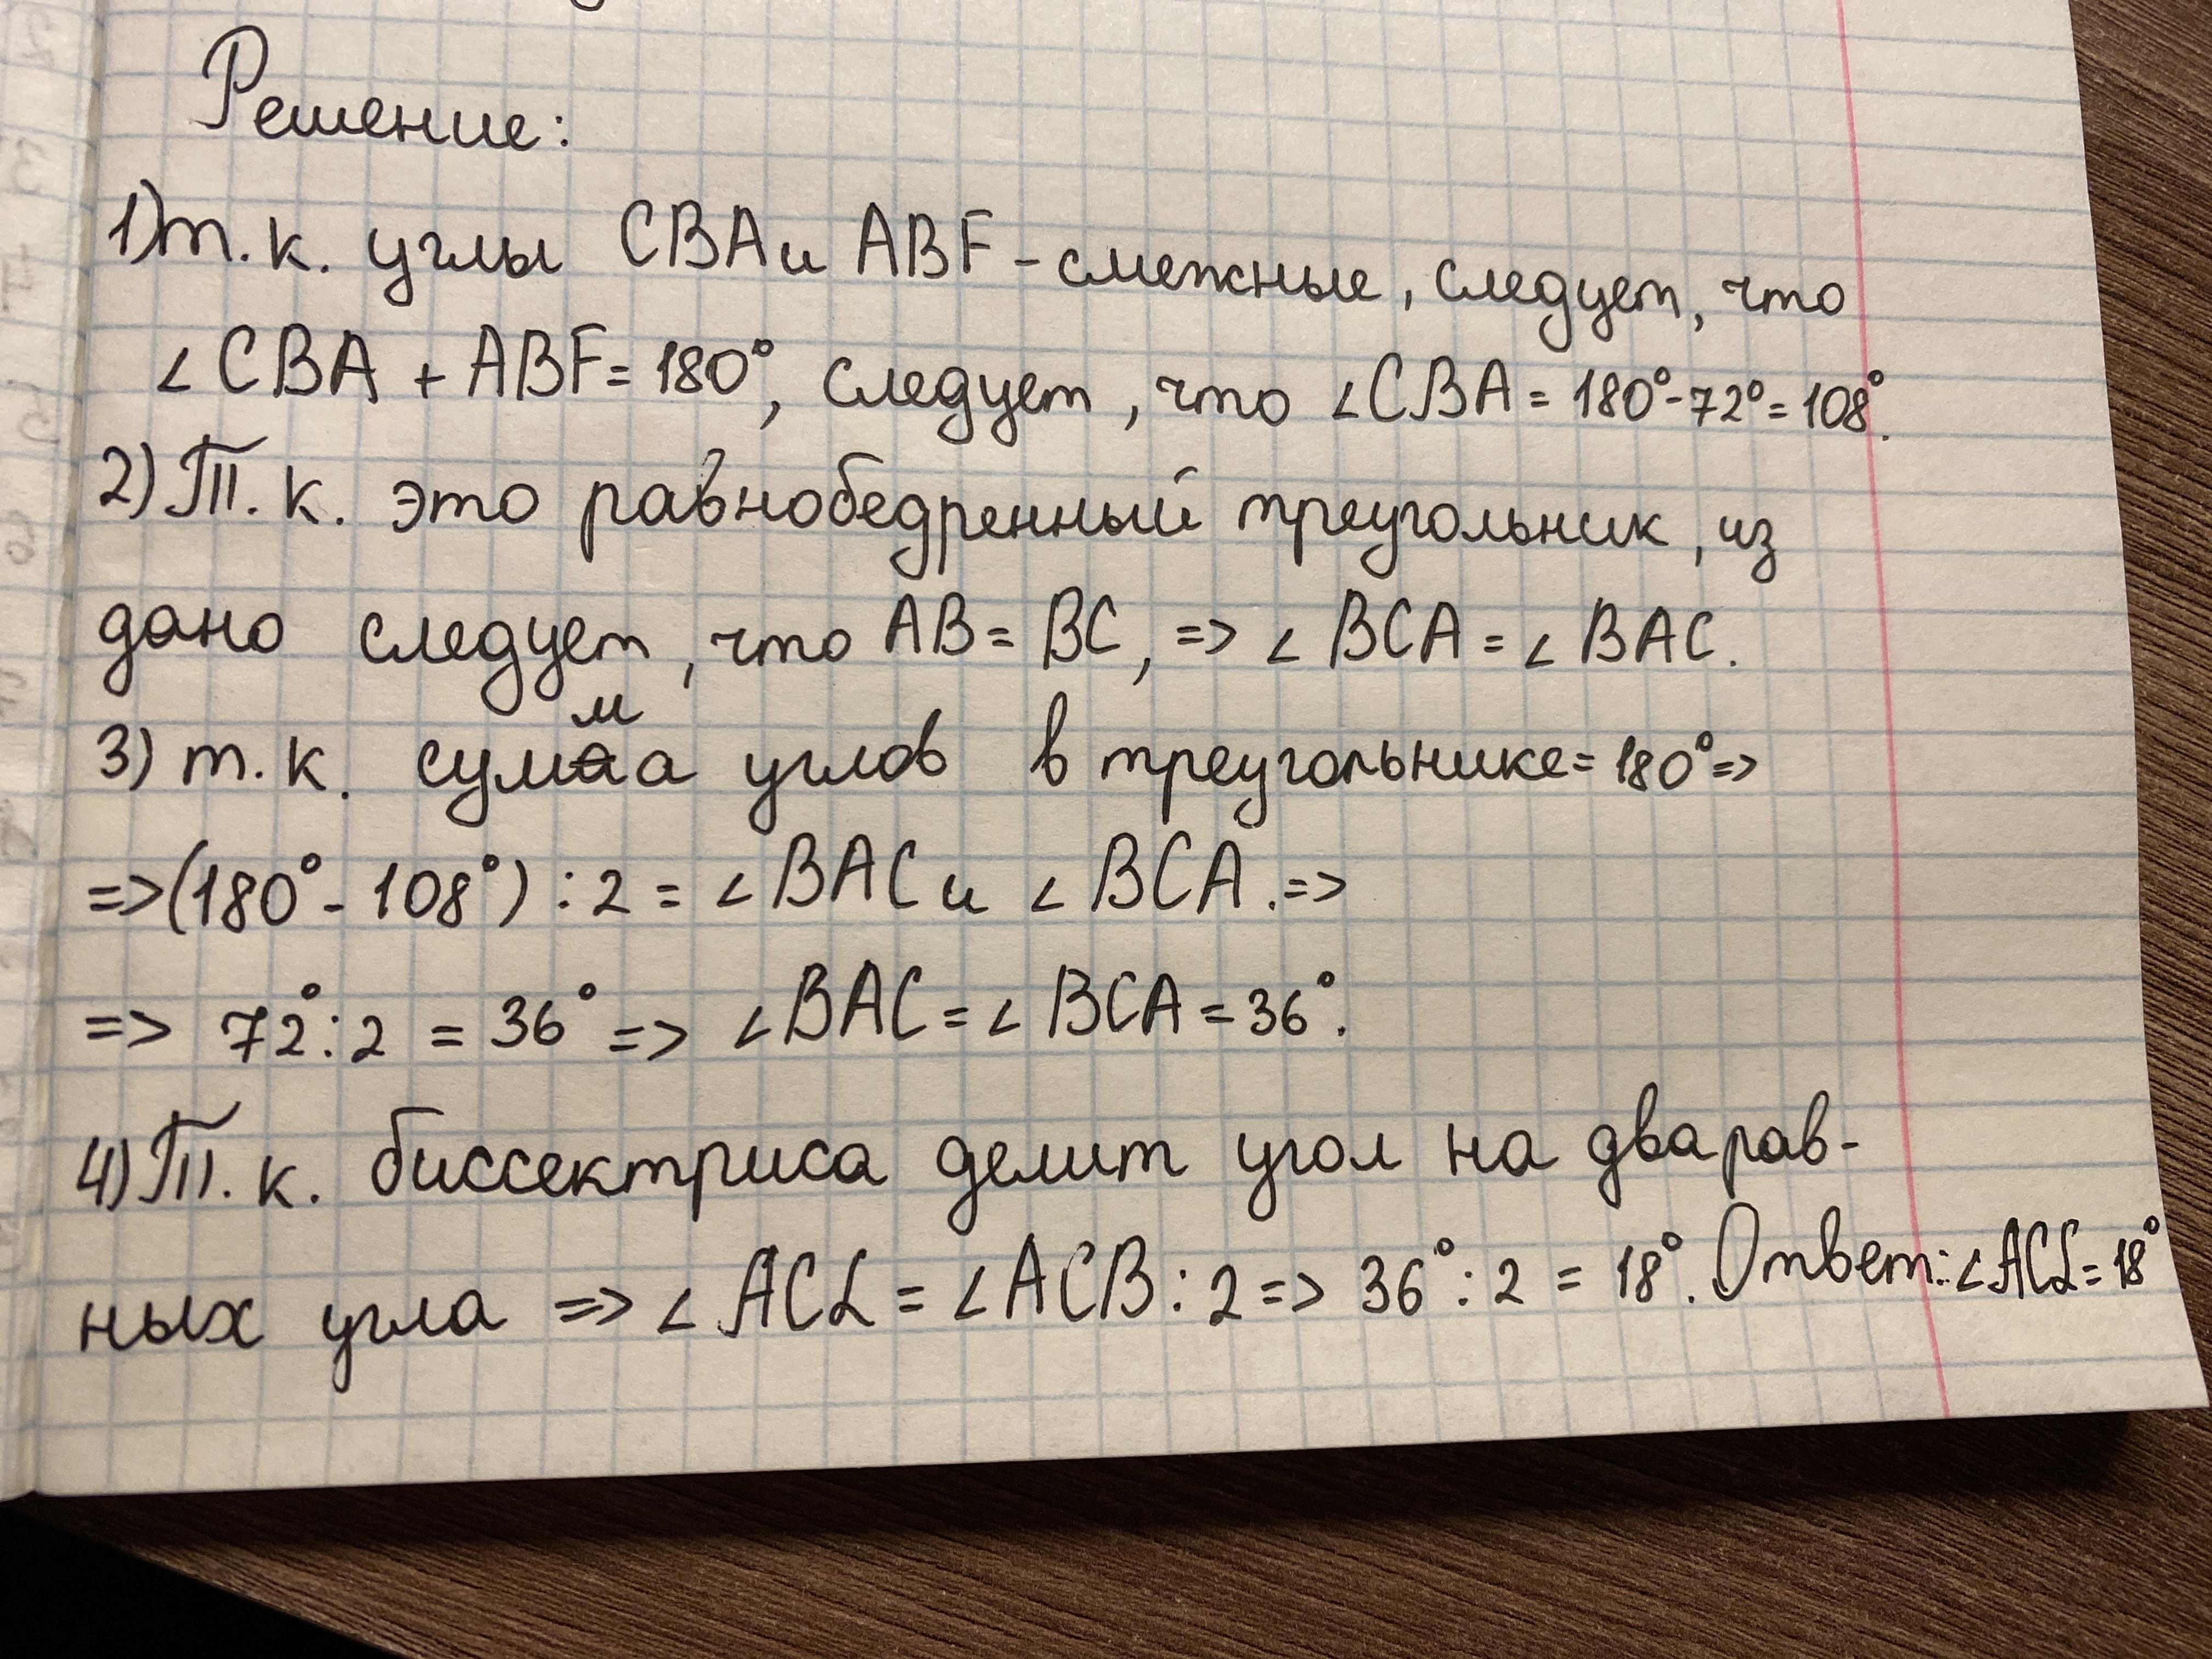 Решение:
1) т. к. углы CBA и ABF - смежные, следует, что
∠CBA + ABF = 180°, следует, что ∠CBA = 180° - 72° = 108°.
2) Т. к. это равнобедренный треугольник, из
дано следует, что AB = BC, => ∠BCA = ∠BAC.
3) т. к. сумма углов в треугольнике = 180° =>
=> (180° - 108°) : 2 = ∠BAC и ∠BCA. =>
=> 72° : 2 = 36° => ∠BAC = ∠BCA = 36°.
4) Т. к. биссектриса делит угол на два рав-
ных угла => ∠ACL = ∠ACB : 2 => 36° : 2 = 18°. Ответ: ∠ACL = 18°